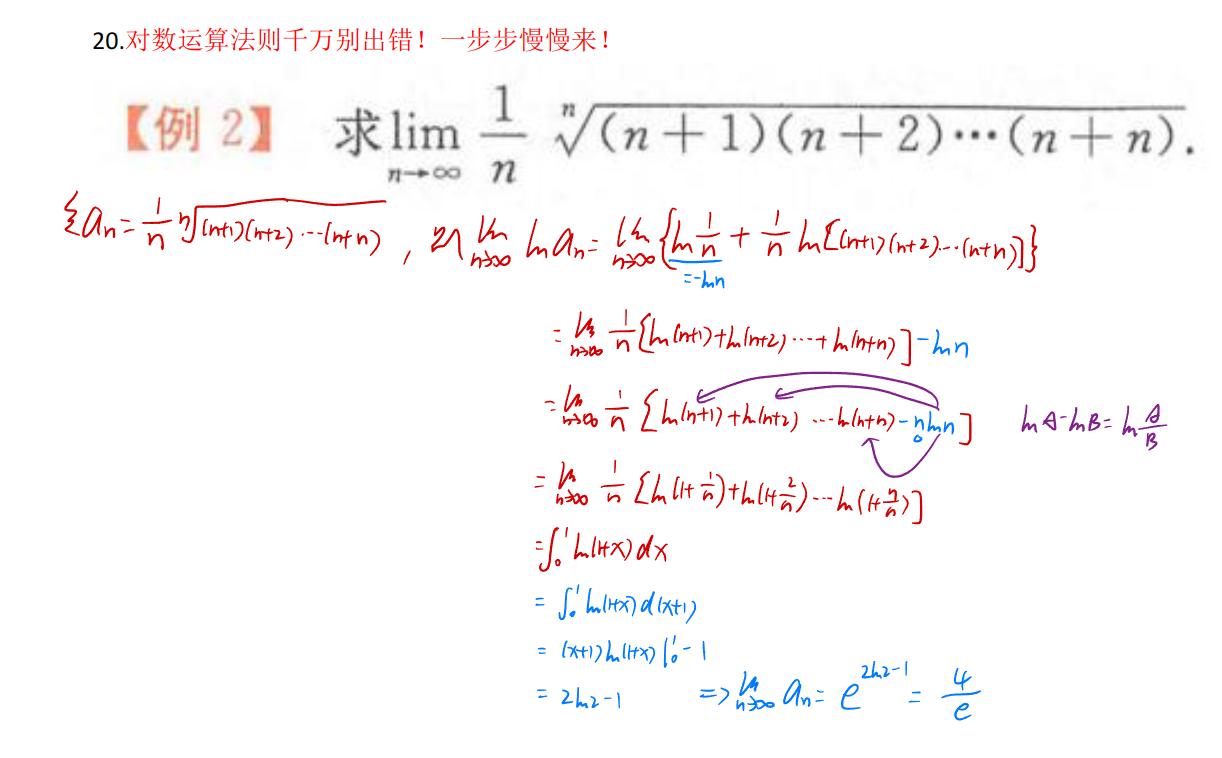 20.对数运算法则千万别出错！一步步慢慢来！
【例 2】 求 lim_{n→∞} 1/n ⁿ√((n+1)(n+2)⋯(n+n)).
令 aₙ = 1/n ⁿ√((n+1)(n+2)⋯(n+n)) , 则 lim_{n→∞} ln aₙ = lim_{n→∞} {ln 1/n + 1/n ln[(n+1)(n+2)⋯(n+n)]}
=-ln n
= lim_{n→∞} 1/n [ln(n+1)+ln(n+2)⋯+ln(n+n)] -ln n
= lim_{n→∞} 1/n [ln(n+1)+ln(n+2) ⋯ln(n+n) -n ln n] ln A-ln B = ln A/B
= lim_{n→∞} 1/n [ln(1+1/n)+ln(1+2/n)⋯ln(1+n/n)]
= ∫₀¹ ln(1+x) dx
= ∫₀¹ ln(1+x) d(x+1)
= (x+1) ln(1+x) |₀¹ - 1
= 2ln2-1 ⇒ lim_{n→∞} aₙ = e^{2ln2-1} = 4/e